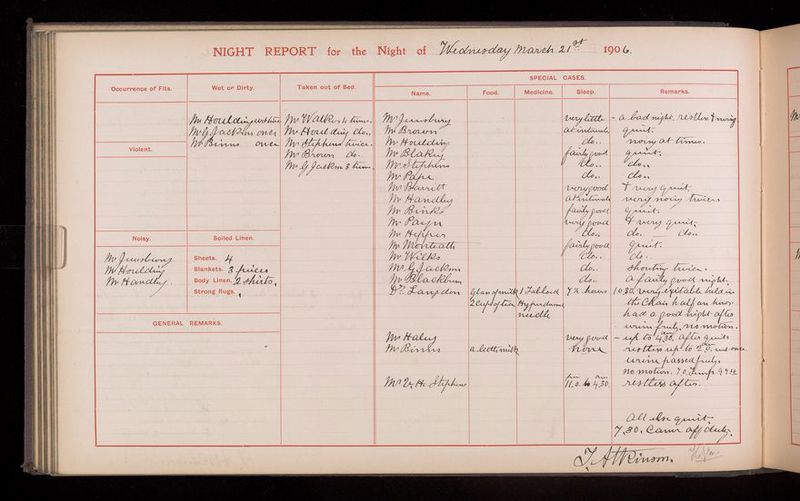 NIGHT REPORT for the Night of Wednesday March 21st 1906.
SPECIAL CASES.
Occurrence of Fits. Wet or Dirty. Taken out of Bed. Name. Food. Medicine. Sleep. Remarks.
Mr Houlding
Mr G Jackson once
Mr Binns once
Mr Walker 4 times.
Mr Houlding do..
Mr Stephens twice.
Mr Brown do.
Mr G Jackson 3 times.
Violent.
Noisy.
Mr Houlding
Mr Handley.
Soiled Linen.
Sheets. 4
Blankets. 3 pieces
Body Linen. 2 shirts.
Strong Rugs.
GENERAL REMARKS.
very little - a bad night. restless & noisy
Mr Brown at intervals quiet.
Mr Houlding do.. noisy at times.
Mr Blakey fairly good quiet.
Mr Stephens do.. do..
Mr Pape do.. do..
Mr Barritt very good & very quiet.
Mr Handley at intervals very noisy twice.
Mr Binks fairly good quiet.
Mr Payn very good & very quiet.
do.. do. do..
Mr Monteath fairly good quiet.
Mr Wilks do.. do.
Mr G Jackson do. shouting twice.
Mr Blackburn do. a fairly good night.
Dr Langdon glass of milk 1 Tabloid 7½ hours 10.30. very excitable held in
2 cups of tea Hypodermic the Chair half an hour.
needle had a good night after
urine freely, no motion.
Mr Haley very good - up to 4.30. after quiet
Mr Binns a little milk none restless up to
urine passed freely.
no motion.
Mr Stephens 11.0. to 4.30. restless after.
All else quiet.
7.30. Came off duty.
J. Atkinson.